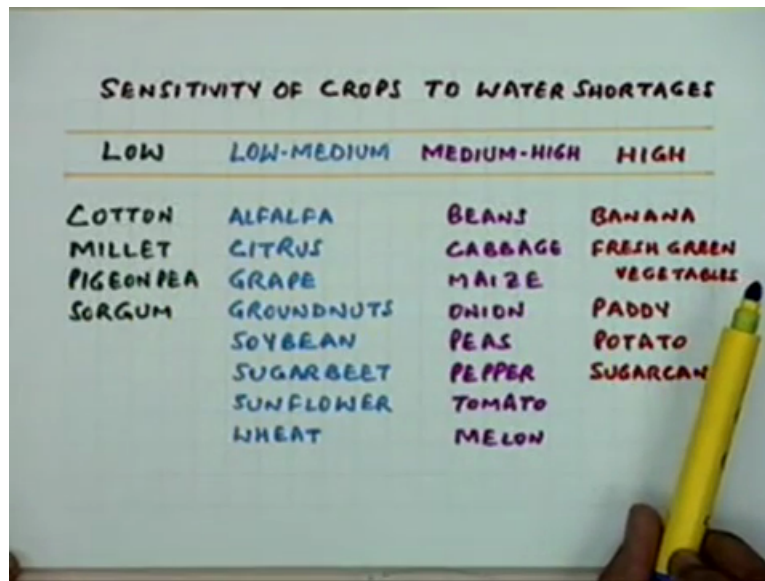 SENSITIVITY OF CROPS TO WATER SHORTAGES
LOW LOW-MEDIUM MEDIUM-HIGH HIGH
COTTON ALFALFA BEANS BANANA
MILLET CITRUS CABBAGE FRESH GREEN
PIGEONPEA GRAPE MAIZE VEGETABLES
SORGUM GROUNDNUTS ONION PADDY
SOYBEAN PEAS POTATO
SUGARBEET PEPPER SUGARCAN
SUNFLOWER TOMATO
WHEAT MELON